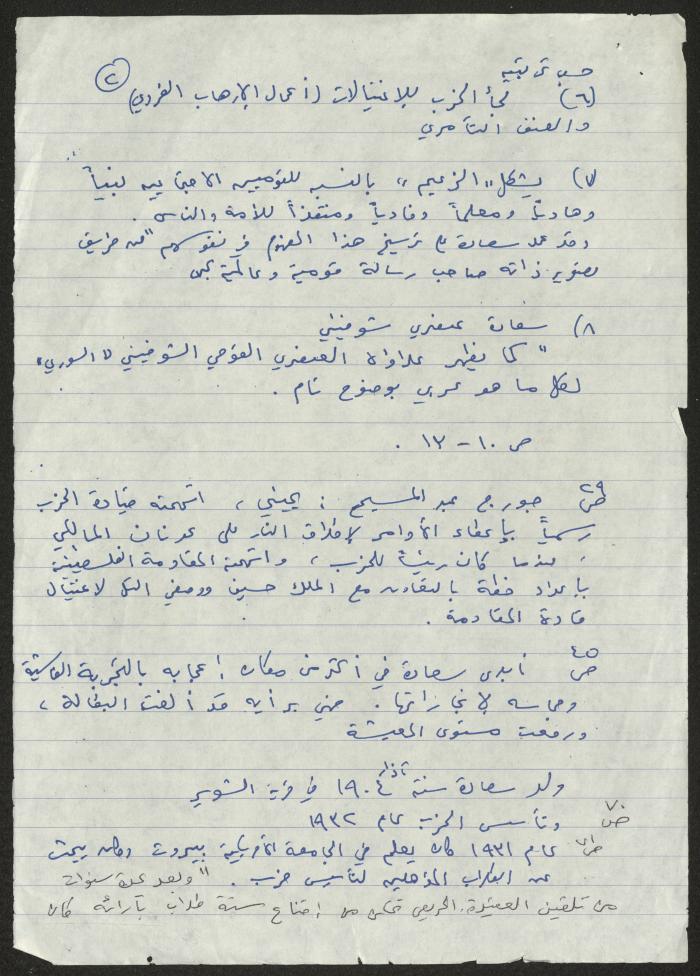 ٢
حسب ترتيبه
(٦) لجأ الحزب للاغتيالات (أعمال الإرهاب الفردي)
والعنف التآمري
٧) يشكل "الزعيم" بالنسبة للقوميين الاجتماعيين نبياً
وهادياً ومعلماً وفادياً ومنقذاً للأمة والناس.
وقد عمد سعادة على ترسيخ هذا الفهم في نفوسهم "عن طريق
تصوير ذاته صاحب رسالة قومية وعالمية
٨) سعادة عنصري شوفيني
"كما يظهر عداؤه العنصري القومي الشوفيني "السوري"
لكل ما هو عربي بوضوح تام.
ص ١٠ - ١٢.
ص ٢٩ جورج عبد المسيح: يميني، اتهمته قيادة الحزب
رسمياً بإعطاء الأوامر لإطلاق النار على عدنان المالكي
عندما كان رئيساً للحزب، واتهمته المقاومة الفلسطينية
بإعداد خطة بالتعاون مع الملك حسين ووصفي التل لاغتيال
قادة المقاومة.
ص ٤٥ أبدى سعادة في أكثر من مكان إعجابه بالتجربة الفاشية
وحماسه لإنجازاتها. فهي برأيه قد ألغت البطالة،
ورفعت مستوى المعيشة
ولد سعادة سنة آذار ١٩٠٤ في قرية الشوير
ص ٧٠ وتأسس الحزب عام ١٩٣٢
ص ٧١ عام ١٩٣١ كان يعلم في الجامعة الأمريكية ببيروت وكان يبحث
عن الطلاب المؤهلين لتأسيس حزب. "وبعد عدة سنوات
من تلقين العقيدة، الحريص تمكن من إقناع ستة طلاب بآرائه كان